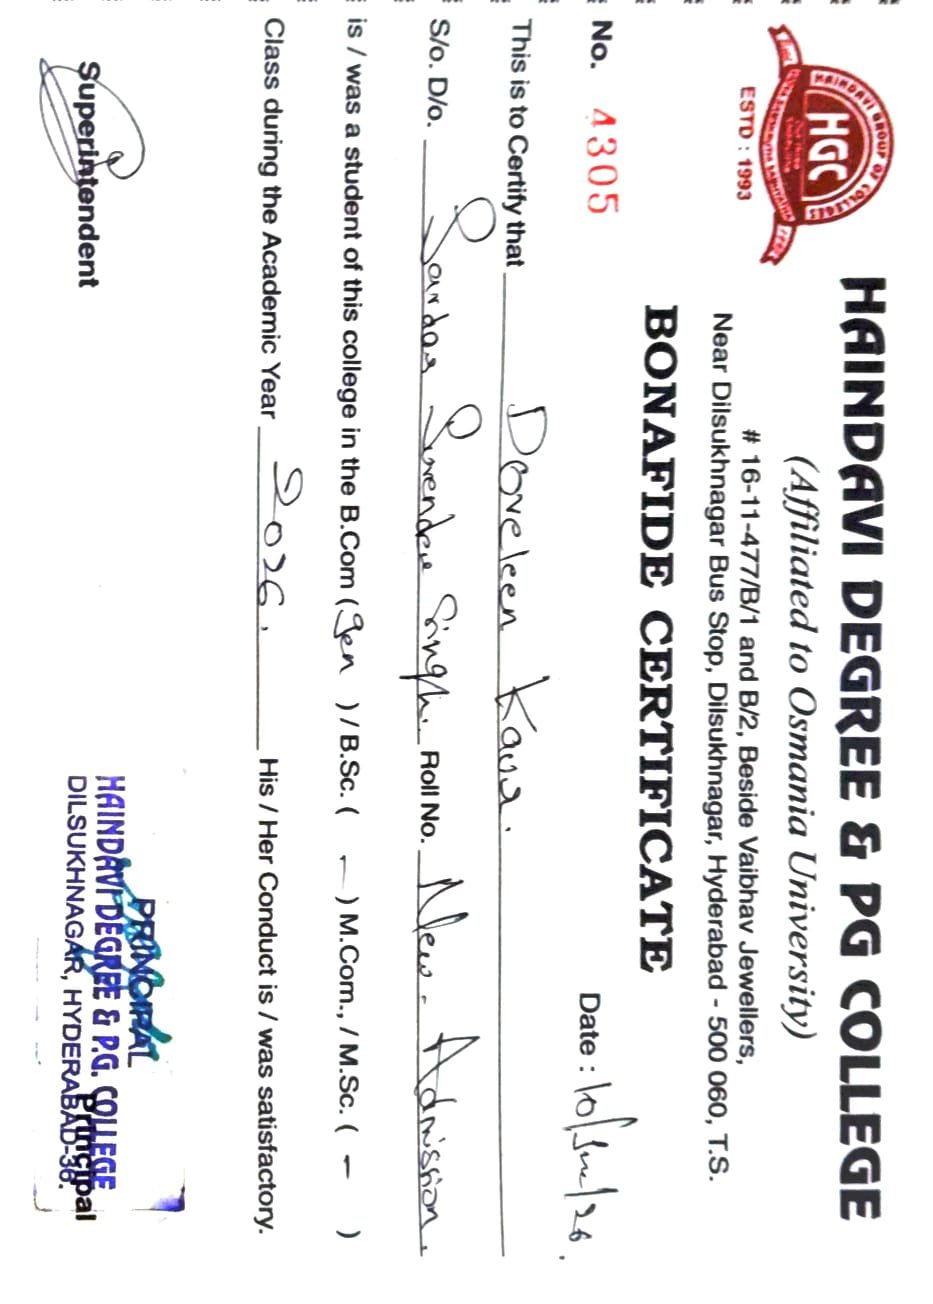 HAINDAVI GROUP OF COLLEGES
HGC
ESTD : 1993
HAINDAVI DEGREE & PG COLLEGE
(Affiliated to Osmania University)
# 16-11-477/B/1 and B/2, Beside Vaibhav Jewellers,
Near Dilsukhnagar Bus Stop, Dilsukhnagar, Hyderabad - 500 060, T.S.
BONAFIDE CERTIFICATE
No. 4305 Date : 10/Jun/26.
This is to Certify that Doveleen Kaur.
S/o. D/o. Sardar Surender Singh. Roll No. New. Admission.
is / was a student of this college in the B.Com (Gen ) / B.Sc. ( - ) M.Com., / M.Sc. ( - )
Class during the Academic Year 2026. His / Her Conduct is / was satisfactory.
PRINCIPAL
HAINDAVI DEGREE & P.G. COLLEGE
DILSUKHNAGAR, HYDERABAD-36.
Superintendent Principal